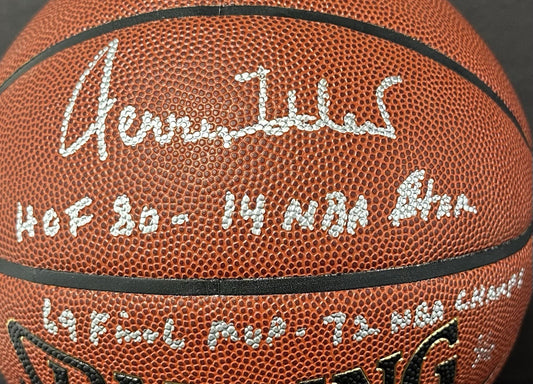 Jerry West
HOF 80 - 14 NBA All Star
69 Finals MVP - 72 NBA CHAMPS
SPALDING